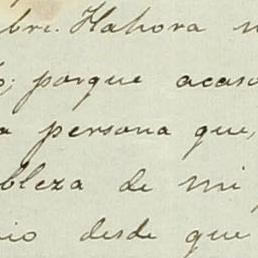 bri. Hahora
; porque acaso
a persona que,
bleza de mi
io desde que